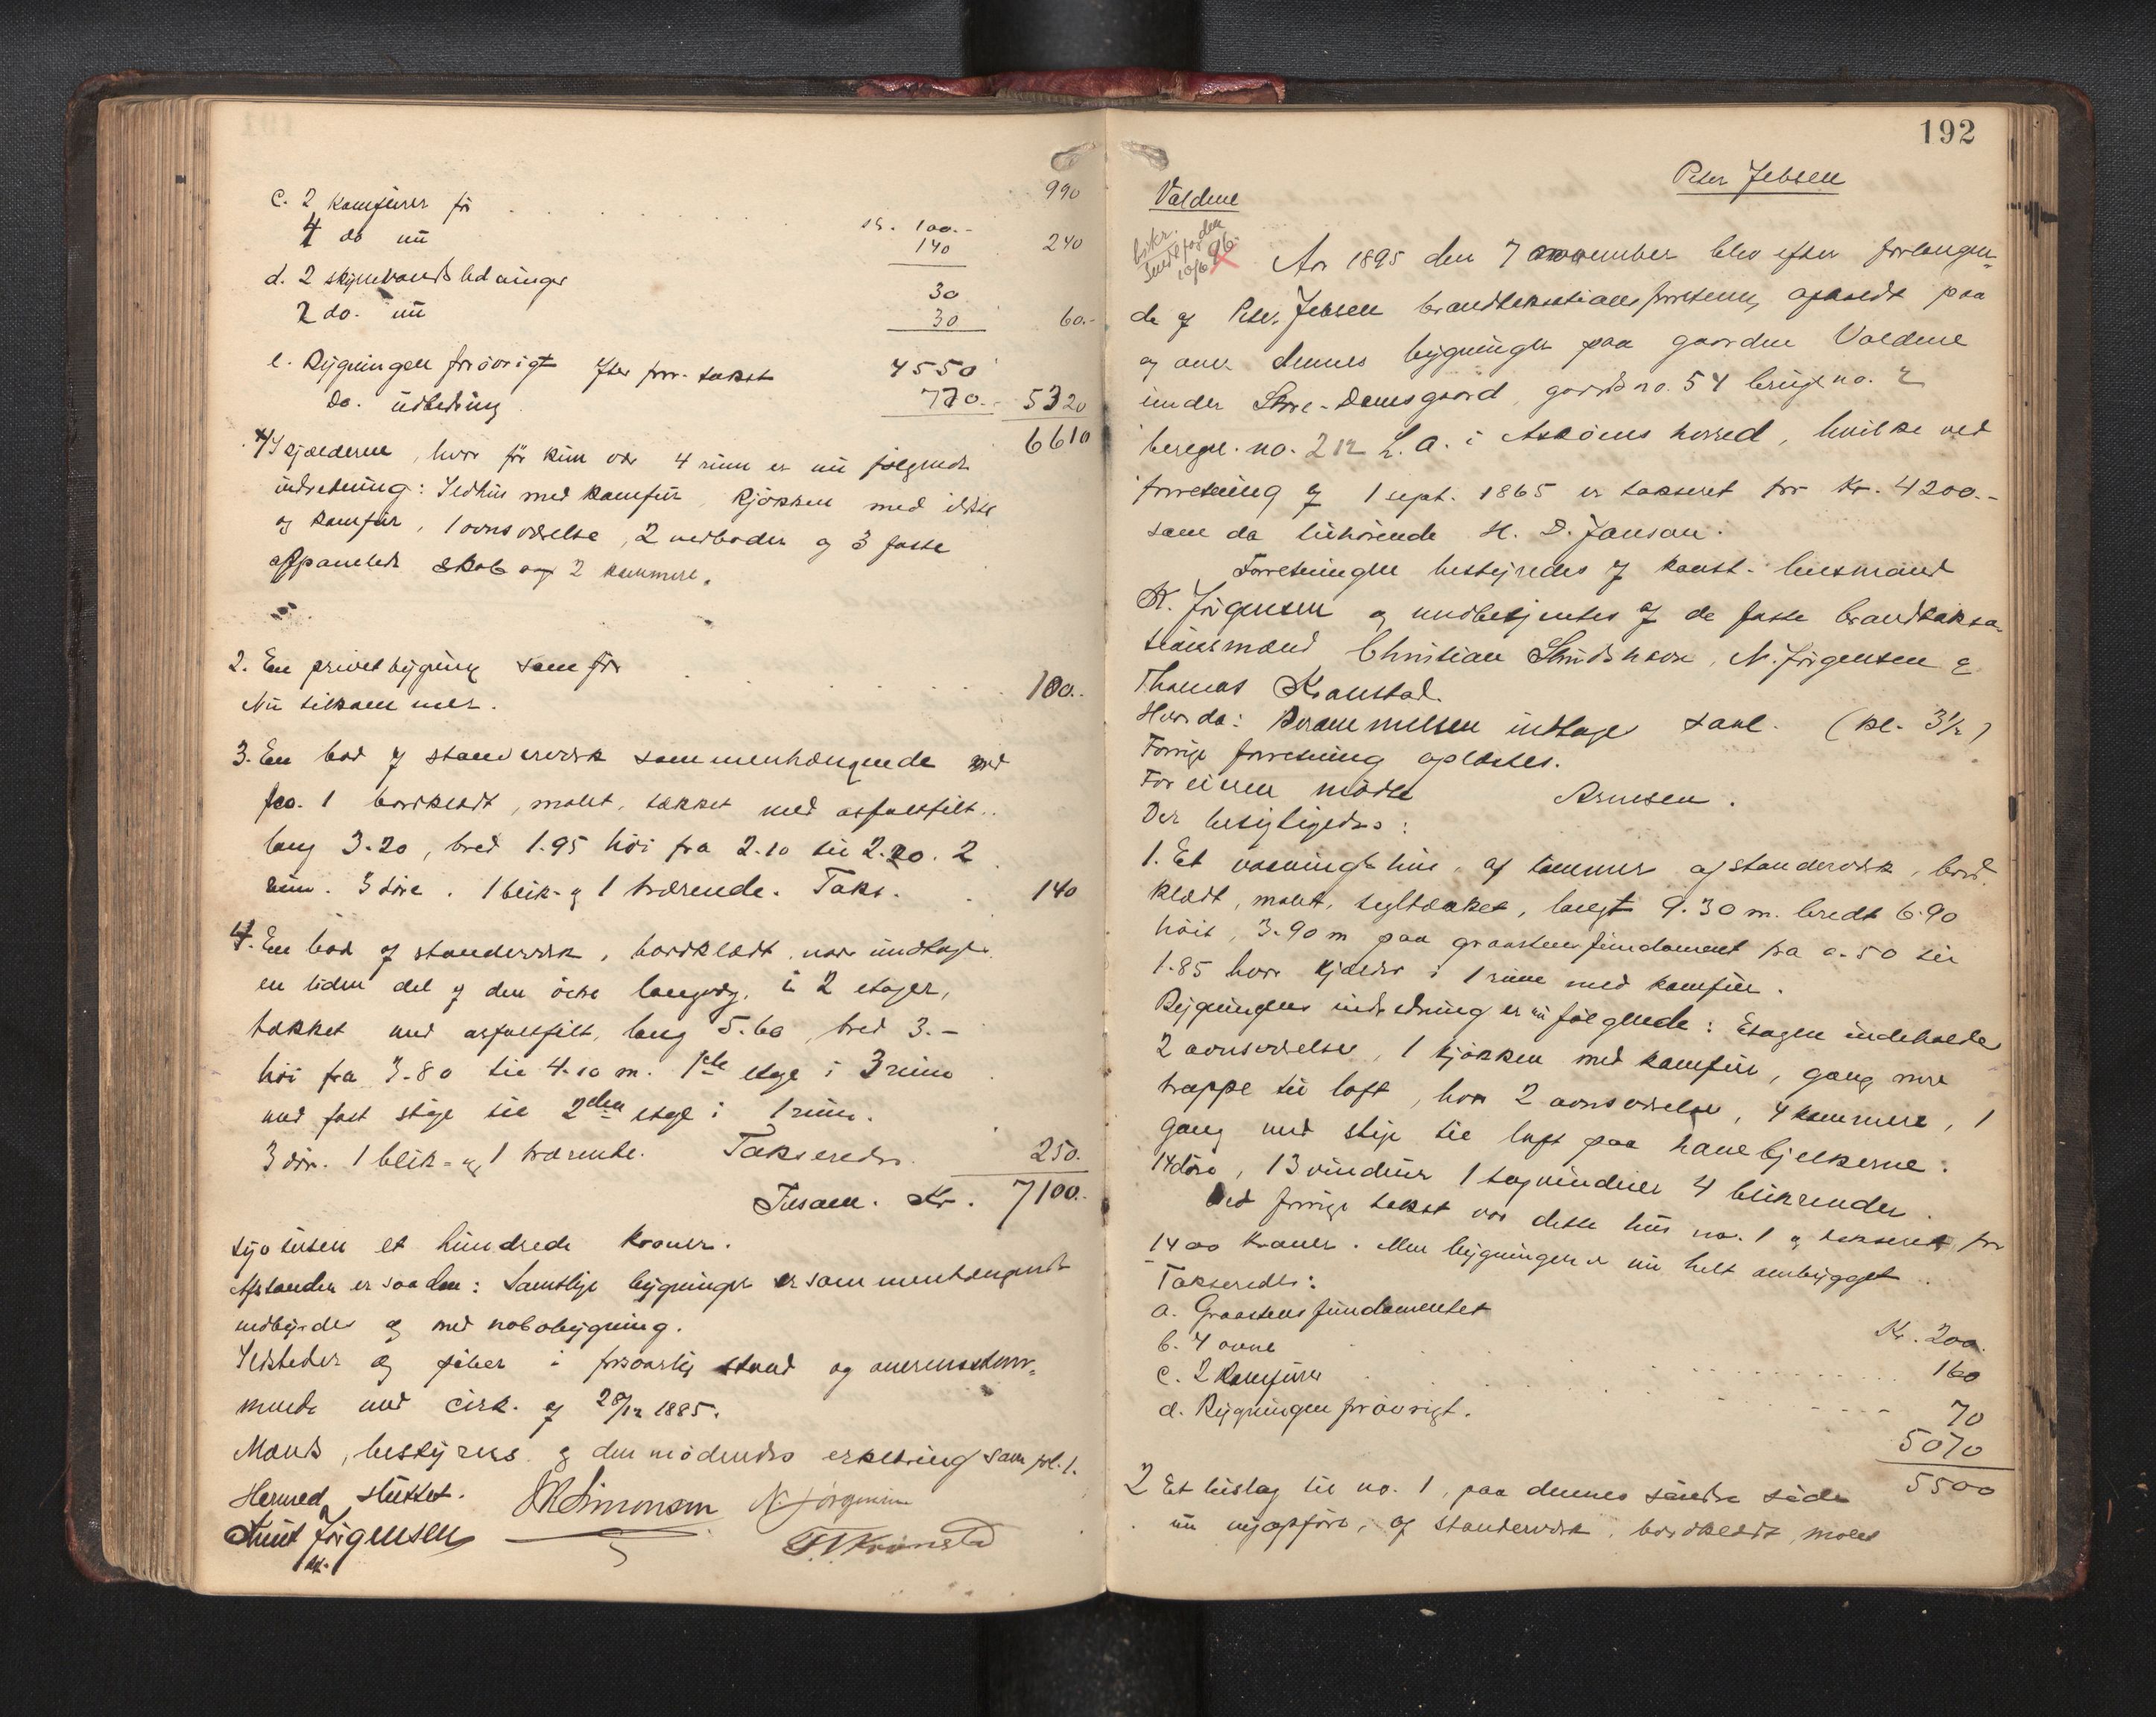 990
c. 2 komfurer før . . . . . . . Kr. 100.-
4 do nu 140 240
d. 2 skyllevandsledninger 30
2 do. nu 30 60.-
e. Bygningen forøvrigt efter forr. takst 4550
Do. udbedring 770.- 5320
6610
I kjælderen, hvor før kun var 4 rum er nu følgende
indretning: Ildhus med komfur, kjøkken med ildsted
og komfur, 1 ovnsværelse, 2 vedboder og 3 faste
afpanelede skab og 2 kammere.
2. En privetbygning som før . . . . . . . 100.-
Nu tilkommer.
3. En bod af stenderværk sammenhængende med
no. 1 bordklædt, malet, tækket med asfaltfilt..
lang 3.20, bred 1.95 høi fra 2.10 til 2.20. 2
rum. 3 døre. 1 blik- og 1 trærende. Takst. . 140
4. En bod af stenderværk, bordklædt, naar undtages
en liden del af den østre langvæg, i 2 etager,
tækket med asfaltfilt, lang 5.60, bred 3.-
høi fra 3.80 til 4.10 m. 1ste etage i 3 rum
med fast stige til 2den etage i 1 rum.
3 dør. 1 blik- og 1 trærende. Takseredes. 250.
Tilsam. Kr. 7100.-
syv tusen et hundrede kroner.
Afstanden er saadan: Samtlige bygninger er sammenhængende
indbyrdes og med nabobygning.
Ildsteder og piber i forsvarlig stand og overensstem-
mende med cirk. af 28/12 1885.
Mands, bestyrers og den mødendes erklæring som fol. 1.
Hermed sluttet.
Knut Jørgensen
JRSimonsen N. Jørgensen
T. Kronstad
192
Peter Jebsen
Valdene
96
Aar 1895 den 7 november blev efter forlangen-
de af Peter Jebsen brandtakstationsforretning afholdt paa
og over dennes bygninger paa gaarden Valdene
under Store-Damsgaard, gaards no. 54 brugs no. 2
beregn. no. 212 L. a. i Askøens herred, hvilke ved
forretning af 1 sept. 1865 er takseret for Kr. 4200.-
som da tilhørende H. D. Janson.
Forretningen bestyredes af konst. lensmand
K. Jørgensen og medbetjentes af de faste brandtaksa-
tionsmænd Christian , N. Jørgensen &
Thomas Kronstad.
Hvorda: Beramnelsen indtages saal. (kl. 3½)
Forrige forretning oplæstes.
For eieren mødte Arnesen.
Der besigtigedes:
1. Et vaaningshus, af tømmer og stenderværk, bord-
klædt, malet, tegltækket, langt 9.30 m. bredt 6.90
høit, 3.90 m paa graastensfundament fra 0.50 til
1.85 hvor kjælder i 1 rum med komfur.
Bygningens indredning er nu følgende: Etagen indeholder
2 ovnsværelser, 1 kjøkken med komfur, gang med
trappe til loft, hvor 2 ovnsværelser, 4 kammere, 1
gang med stige til loft paa hanebjelkerne.
14 døre, 13 vinduer 1 tagvindue 4 blikrender.
Ved forrige takst var dette hus no. 1 og takseret for
1400 kroner. Men bygningen er nu helt ombygget.
Takseredes:
a. Graastensfundamentet Kr. 200.
b. 4 ovne . . . . . . . . 160
c. 2 komfurer . . . . . . . 70
d. Bygningen forøvrigt. 5070
5500
2 Et tilslag til no. 1, paa dennes søndre side
nu nyopført, af stenderværk, bordklædt, malet